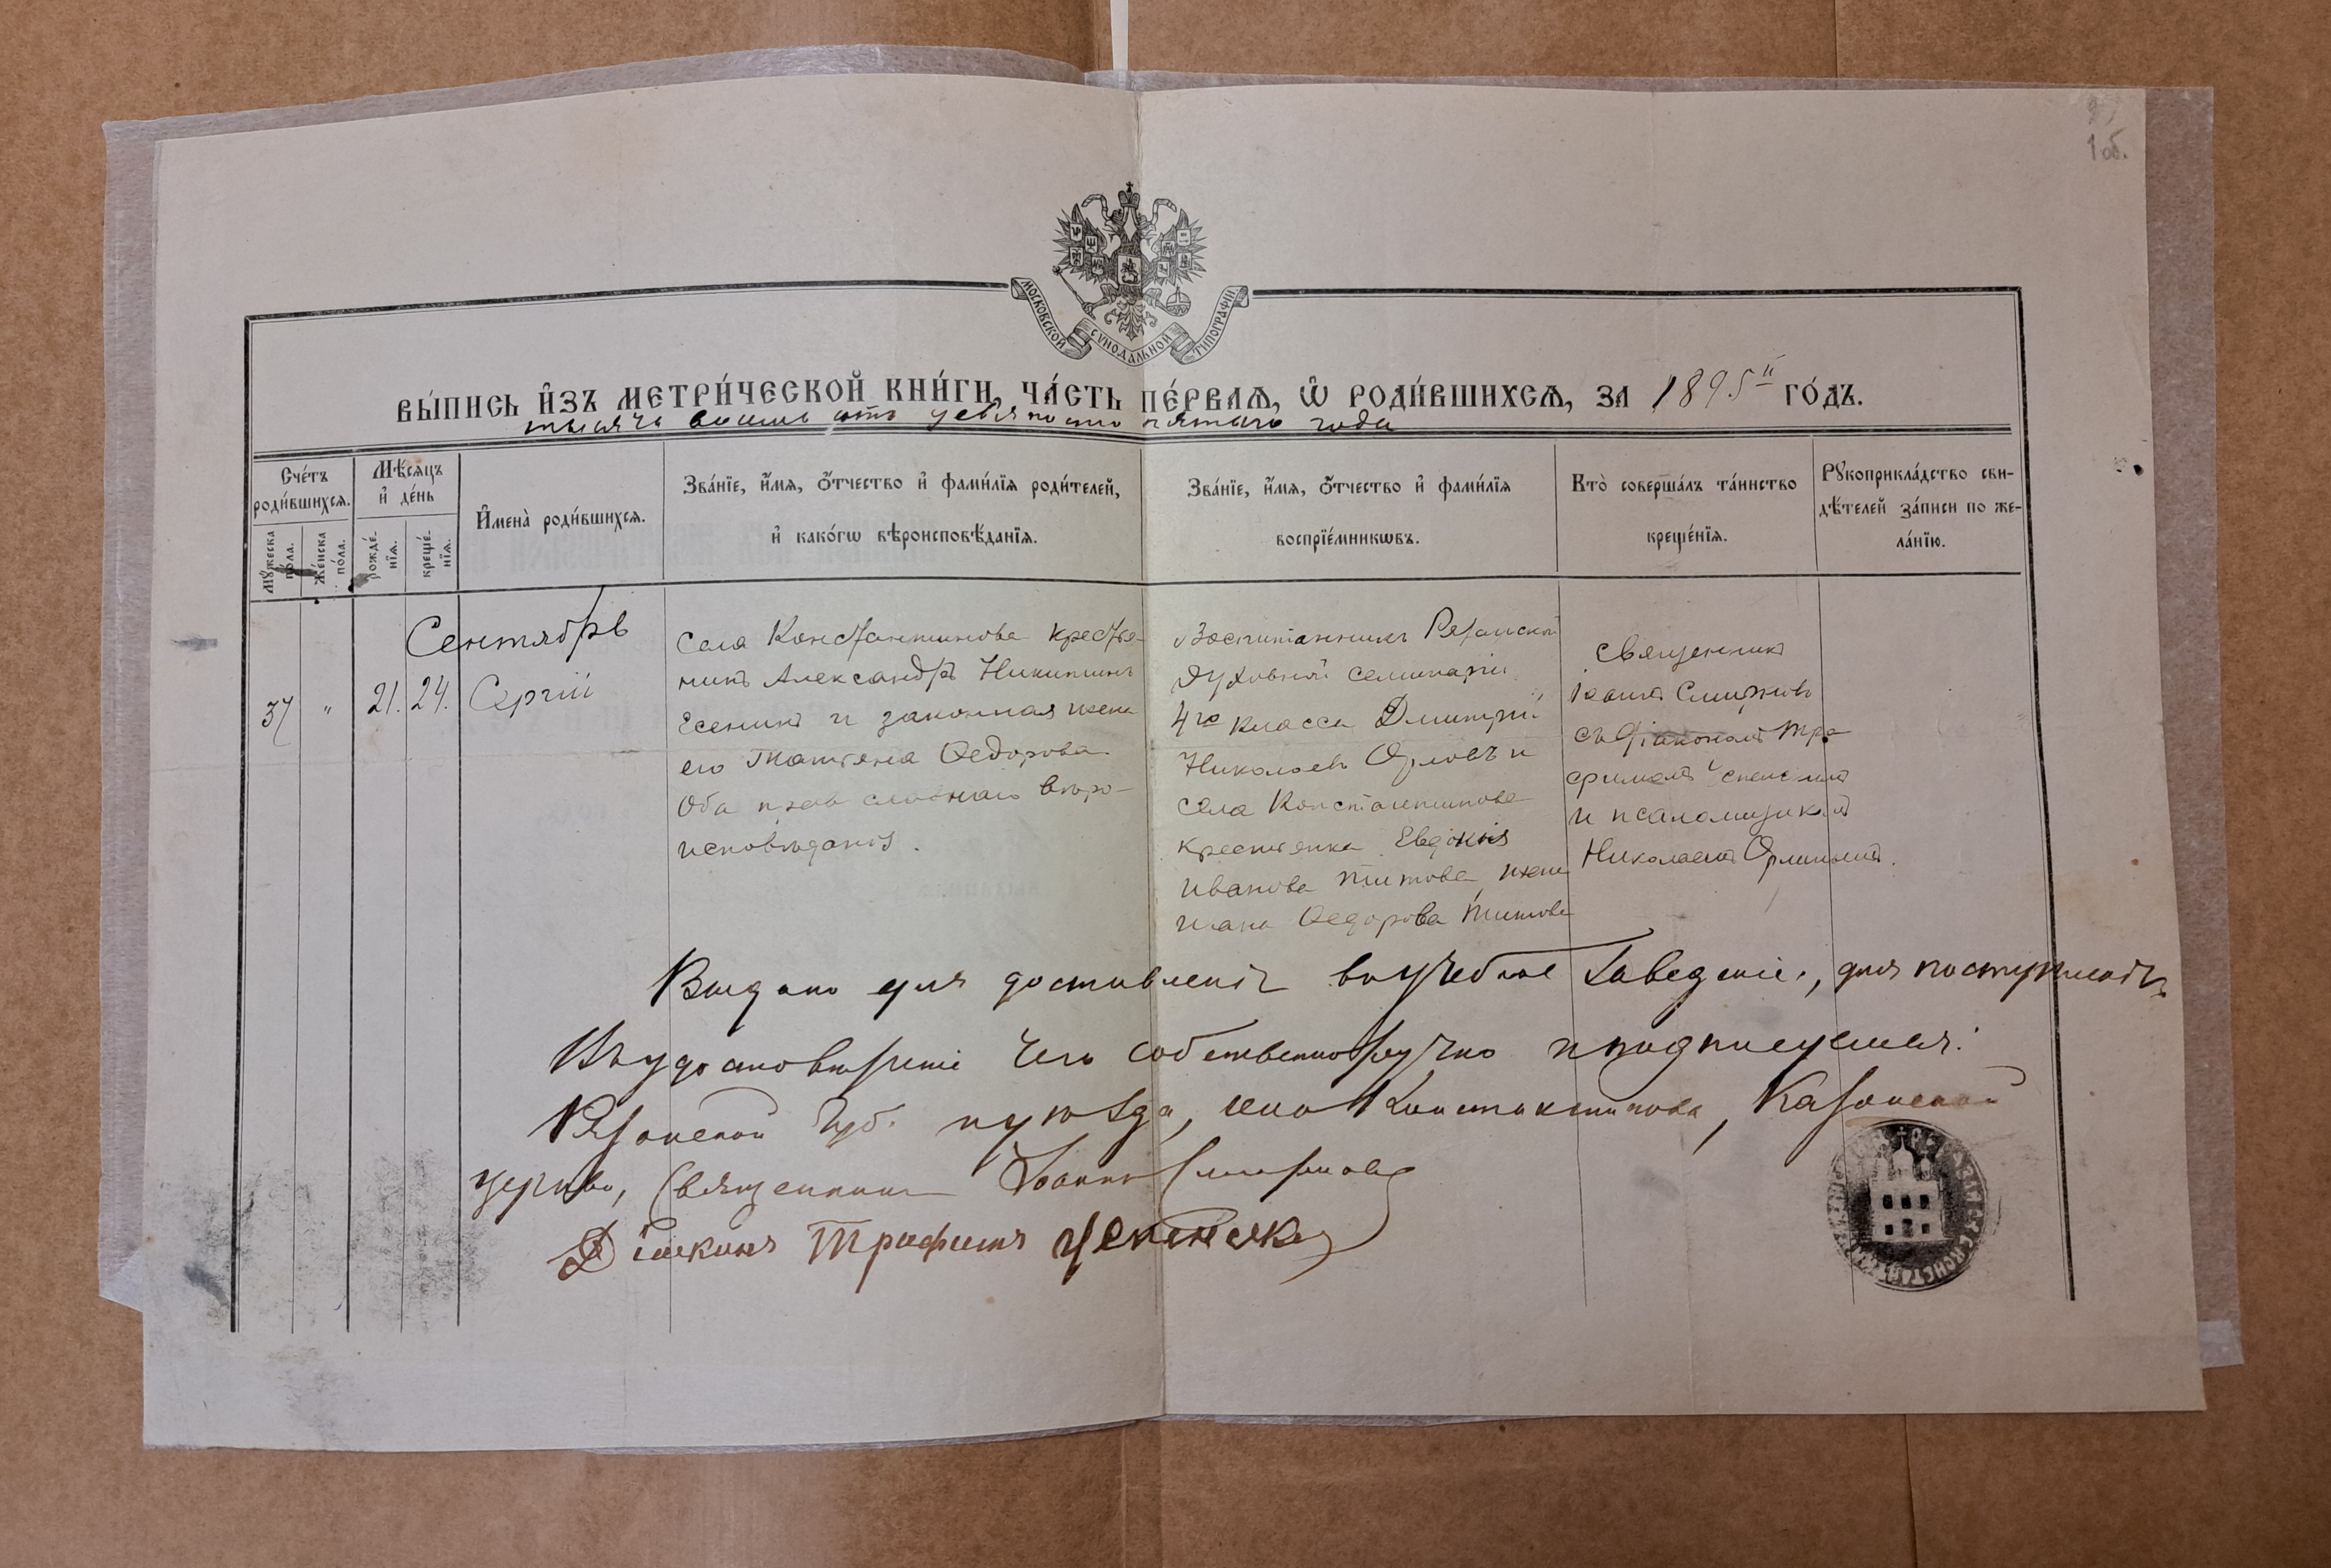 1 об.
МОСКОВСКОЙ СѴНОДАЛЬНОЙ ТИПОГРАФІИ
ВЫ́ПИСЬ И҆ЗЪ МЕТРИ́ЧЕСКОЙ КНИ́ГИ, ЧА́СТЬ ПЕ́РВАѦ, Ѽ РОДИ́ВШИХСѦ, ЗА 1895й ГО́ДЪ.
тысяча восемь сотъ девяносто пятаго года
Сче́тъ роди́вшихсѧ.
Мꙋ́жеска по́ла.
Же́нска по́ла.
Мѣ́сѧцъ и҆ де́нь
рожде́нїѧ.
креще́нїѧ.
И҆мена̀ роди́вшихсѧ.
Зва́нїе, и҆́мѧ, ѻ҆́тчество и҆ фами́лїѧ роди́телей,
и҆ како́гѡ вѣроисповѣ́данїѧ.
Зва́нїе, и҆́мѧ, ѻ҆́тчество и҆ фами́лїѧ
воспрїе́мникѡвъ.
Кто̀ соверша́лъ та́инство
креще́нїѧ.
Рꙋкоприкла́дство сви-
дѣ́телей за́писи по же-
ла́нїю.
Сентябрь
37 " 21. 24. Сергій
Села Константинова крестья-
нинъ Александръ Никитинъ
Есенинъ и законная жена
его Татьяна Ѳедорова
Оба православнаго вѣро-
исповѣданія.
Воспитанникъ Рязанской
духовной семинаріи
4го класса Дмитрій
Николаевъ Орловъ и
села Константинова
крестьянка Евдокія
Иванова Титова, жена
Ивана Ѳедорова Титова
Священникъ
Іоаннъ Смирновъ
съ діакономъ Тро
фимомъ
и псаломщикомъ
Николаемъ Орлинымъ.
Выдано для доставленія въ учебное заведеніе, для поступленія
Въ удостовѣреніе чего собственноручно и подписуемся:
Рязанской Губ. и уѣзда, села Константинова, Казанской
церкви, Священникъ Іоаннъ Смирновъ
Діаконъ Трофимъ